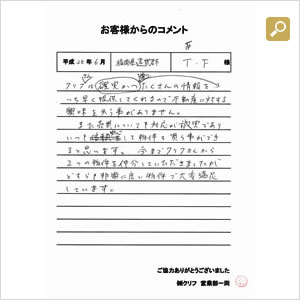 お客様からのコメント
平成28年6月 福岡県遠賀郡 T.F 様
クリフは確実かつたくさんの情報を
いち早く提供してくれるので不動産に対する
興味を失う事がありません。
また売買についても対応が誠実であり
いつも して物件を買う事ができ
ると思います。今までクリフさんから
2つの物件を仲介していただきましたが
どちらも非常に良い物件で大変満足
しています。
ご協力ありがとうございました
㈱クリフ 営業部一同